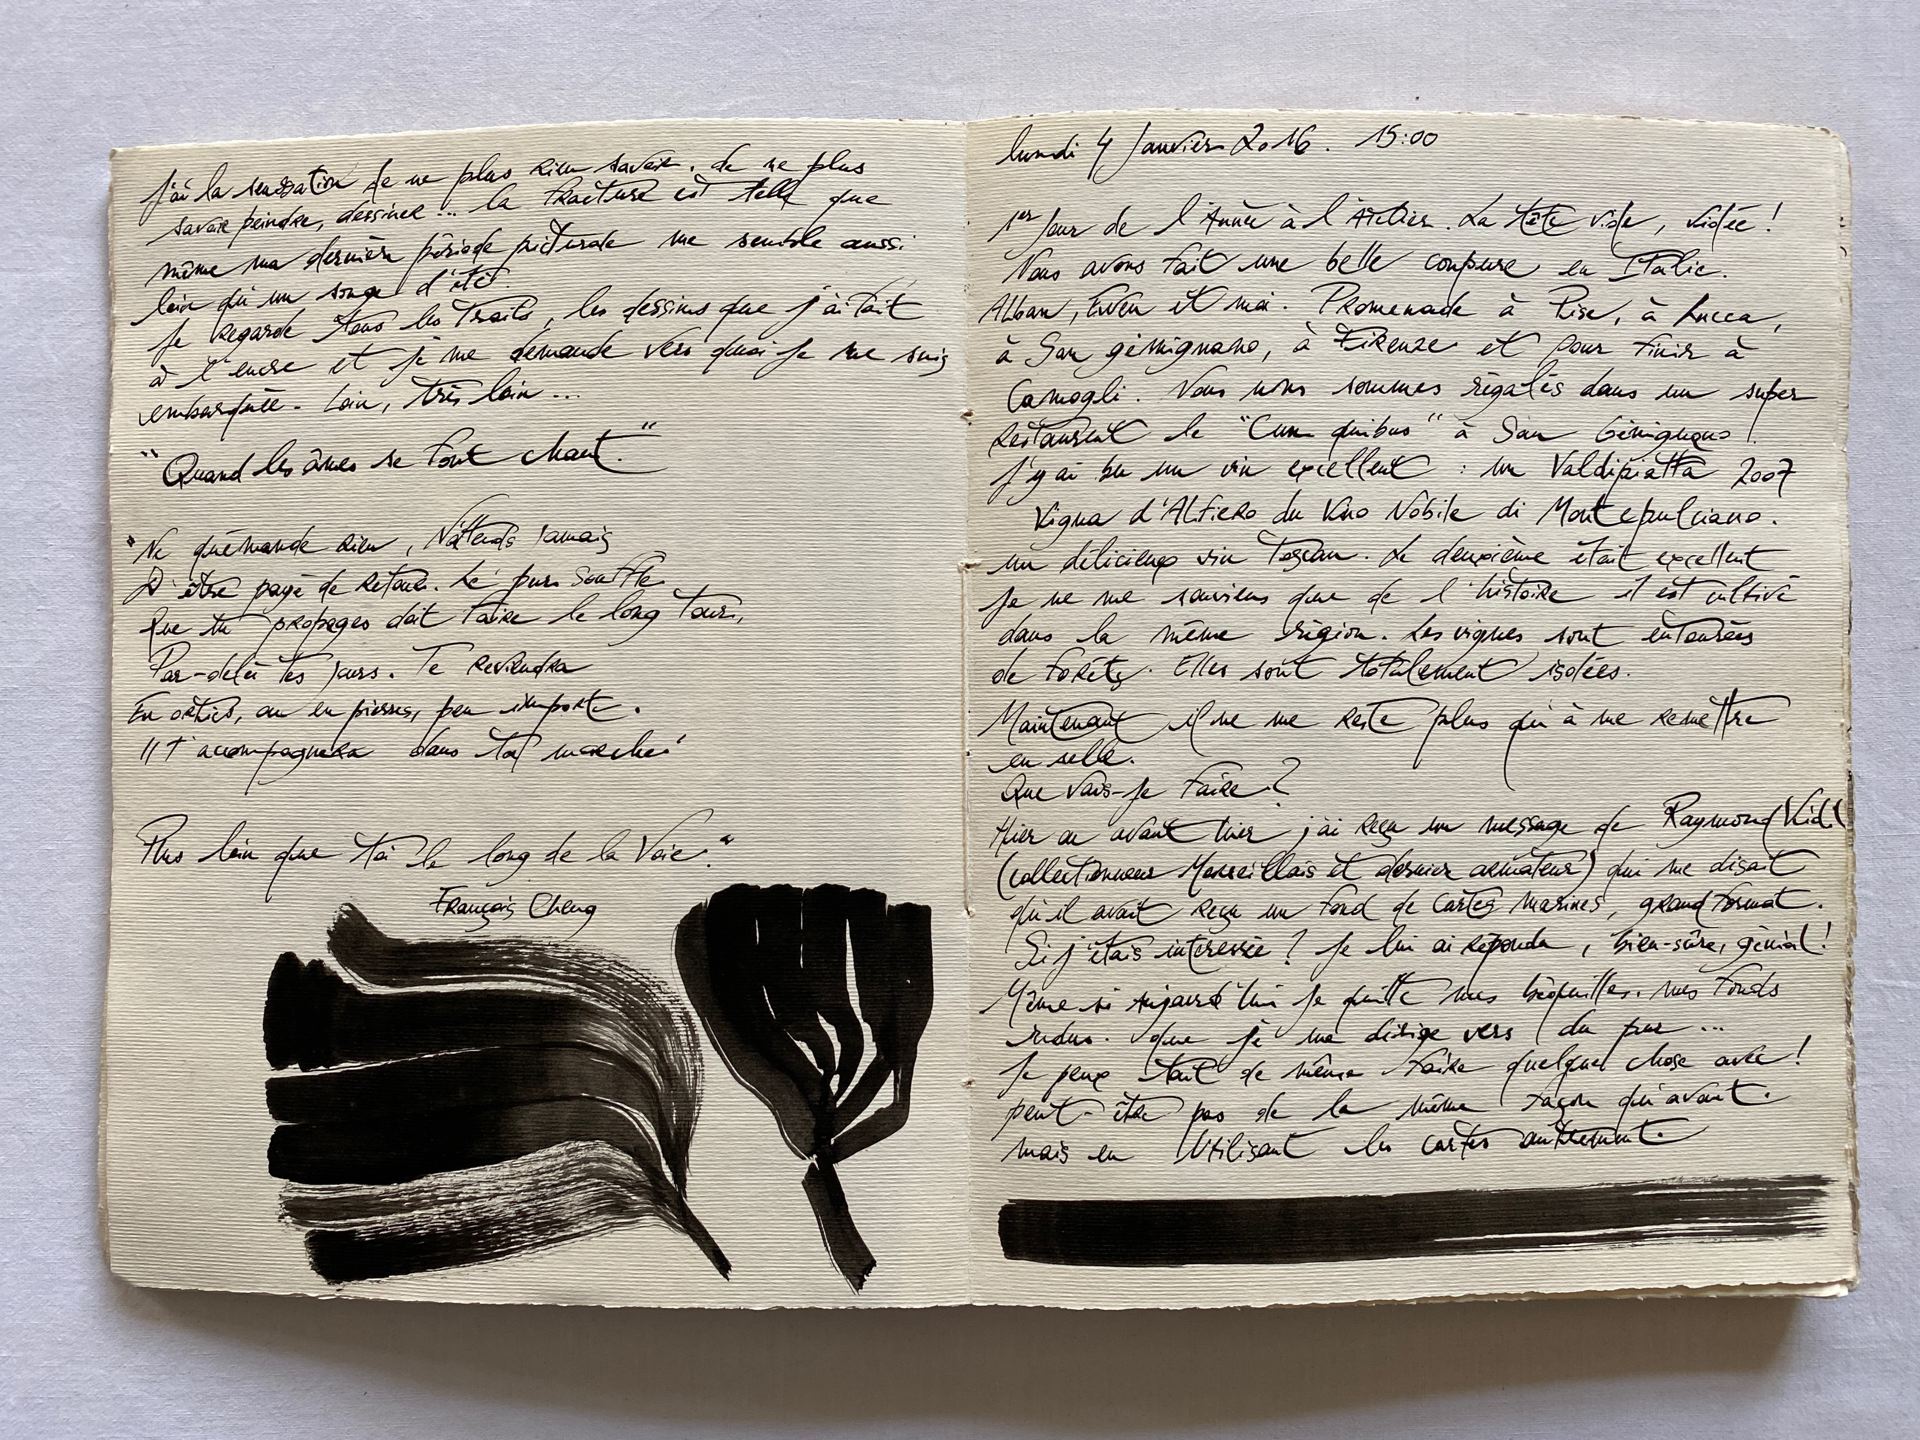 J'ai la sensation de ne plus rien savoir. de ne plus
savoir peindre, dessiner... la fracture est telle que
même ma dernière période picturale me semble aussi
loin qu'un songe d'été.
Je regarde tous les traits, les dessins que j'ai fait
à l'encre et je me demande vers quoi je me suis
embarquée. Loin, très loin...
"Quand les âmes se font chant."
"Ne quémande rien, N'attends jamais
D'être payé de retour. Le pur souffle
Que tu propages doit faire le long tour,
Par-delà tes jours. Te reviendra
En orties, ou en pierres, peu importe.
Il t'accompagnera dans ta marche
Plus loin que toi le long de la Voie."
François Cheng
lundi 4 Janvier 2016. 15:00
1er Jour de l'Année à l'Atelier. La tête vide, vidée!
Nous avons fait une belle coupure en Italie.
Alban, Ewen et moi. Promenade à Pise, à Lucca,
à San gimignano, à Firenze et pour finir à
Camogli. Nous nous sommes régalés dans un super
restaurent le "Cum quibus" à San Gimignano!
J'y ai bu un vin excellent : un Valdipiatta 2007
Vigna d'Alfiero du Vino Nobile di Montepulciano.
un délicieux vin Toscan. Le deuxième était excellent
Je ne me souviens que de l'histoire il est cultivé
dans la même région. Les vignes sont entourées
de forêts. Elles sont totalement isolées.
Maintenant il ne me reste plus qu'à me remettre
en selle.
Que vais-je faire?
Hier ou avant hier j'ai reçu un message de Raymond
(collectionneur Marseillais et dernier armateur) qui me disait
qu'il avait reçu un fond de cartes marines, grand format.
Si j'étais intéressée? Je lui ai répondu, bien-sûre, génial!
Même si aujourd'hui je quitte mes béquilles. mes fonds
indus. que je me dirige vers du pur...
Je peux tout de même faire quelque chose avec!
peut-être pas de la même façon qu'avant.
mais en utilisant les cartes autrement.